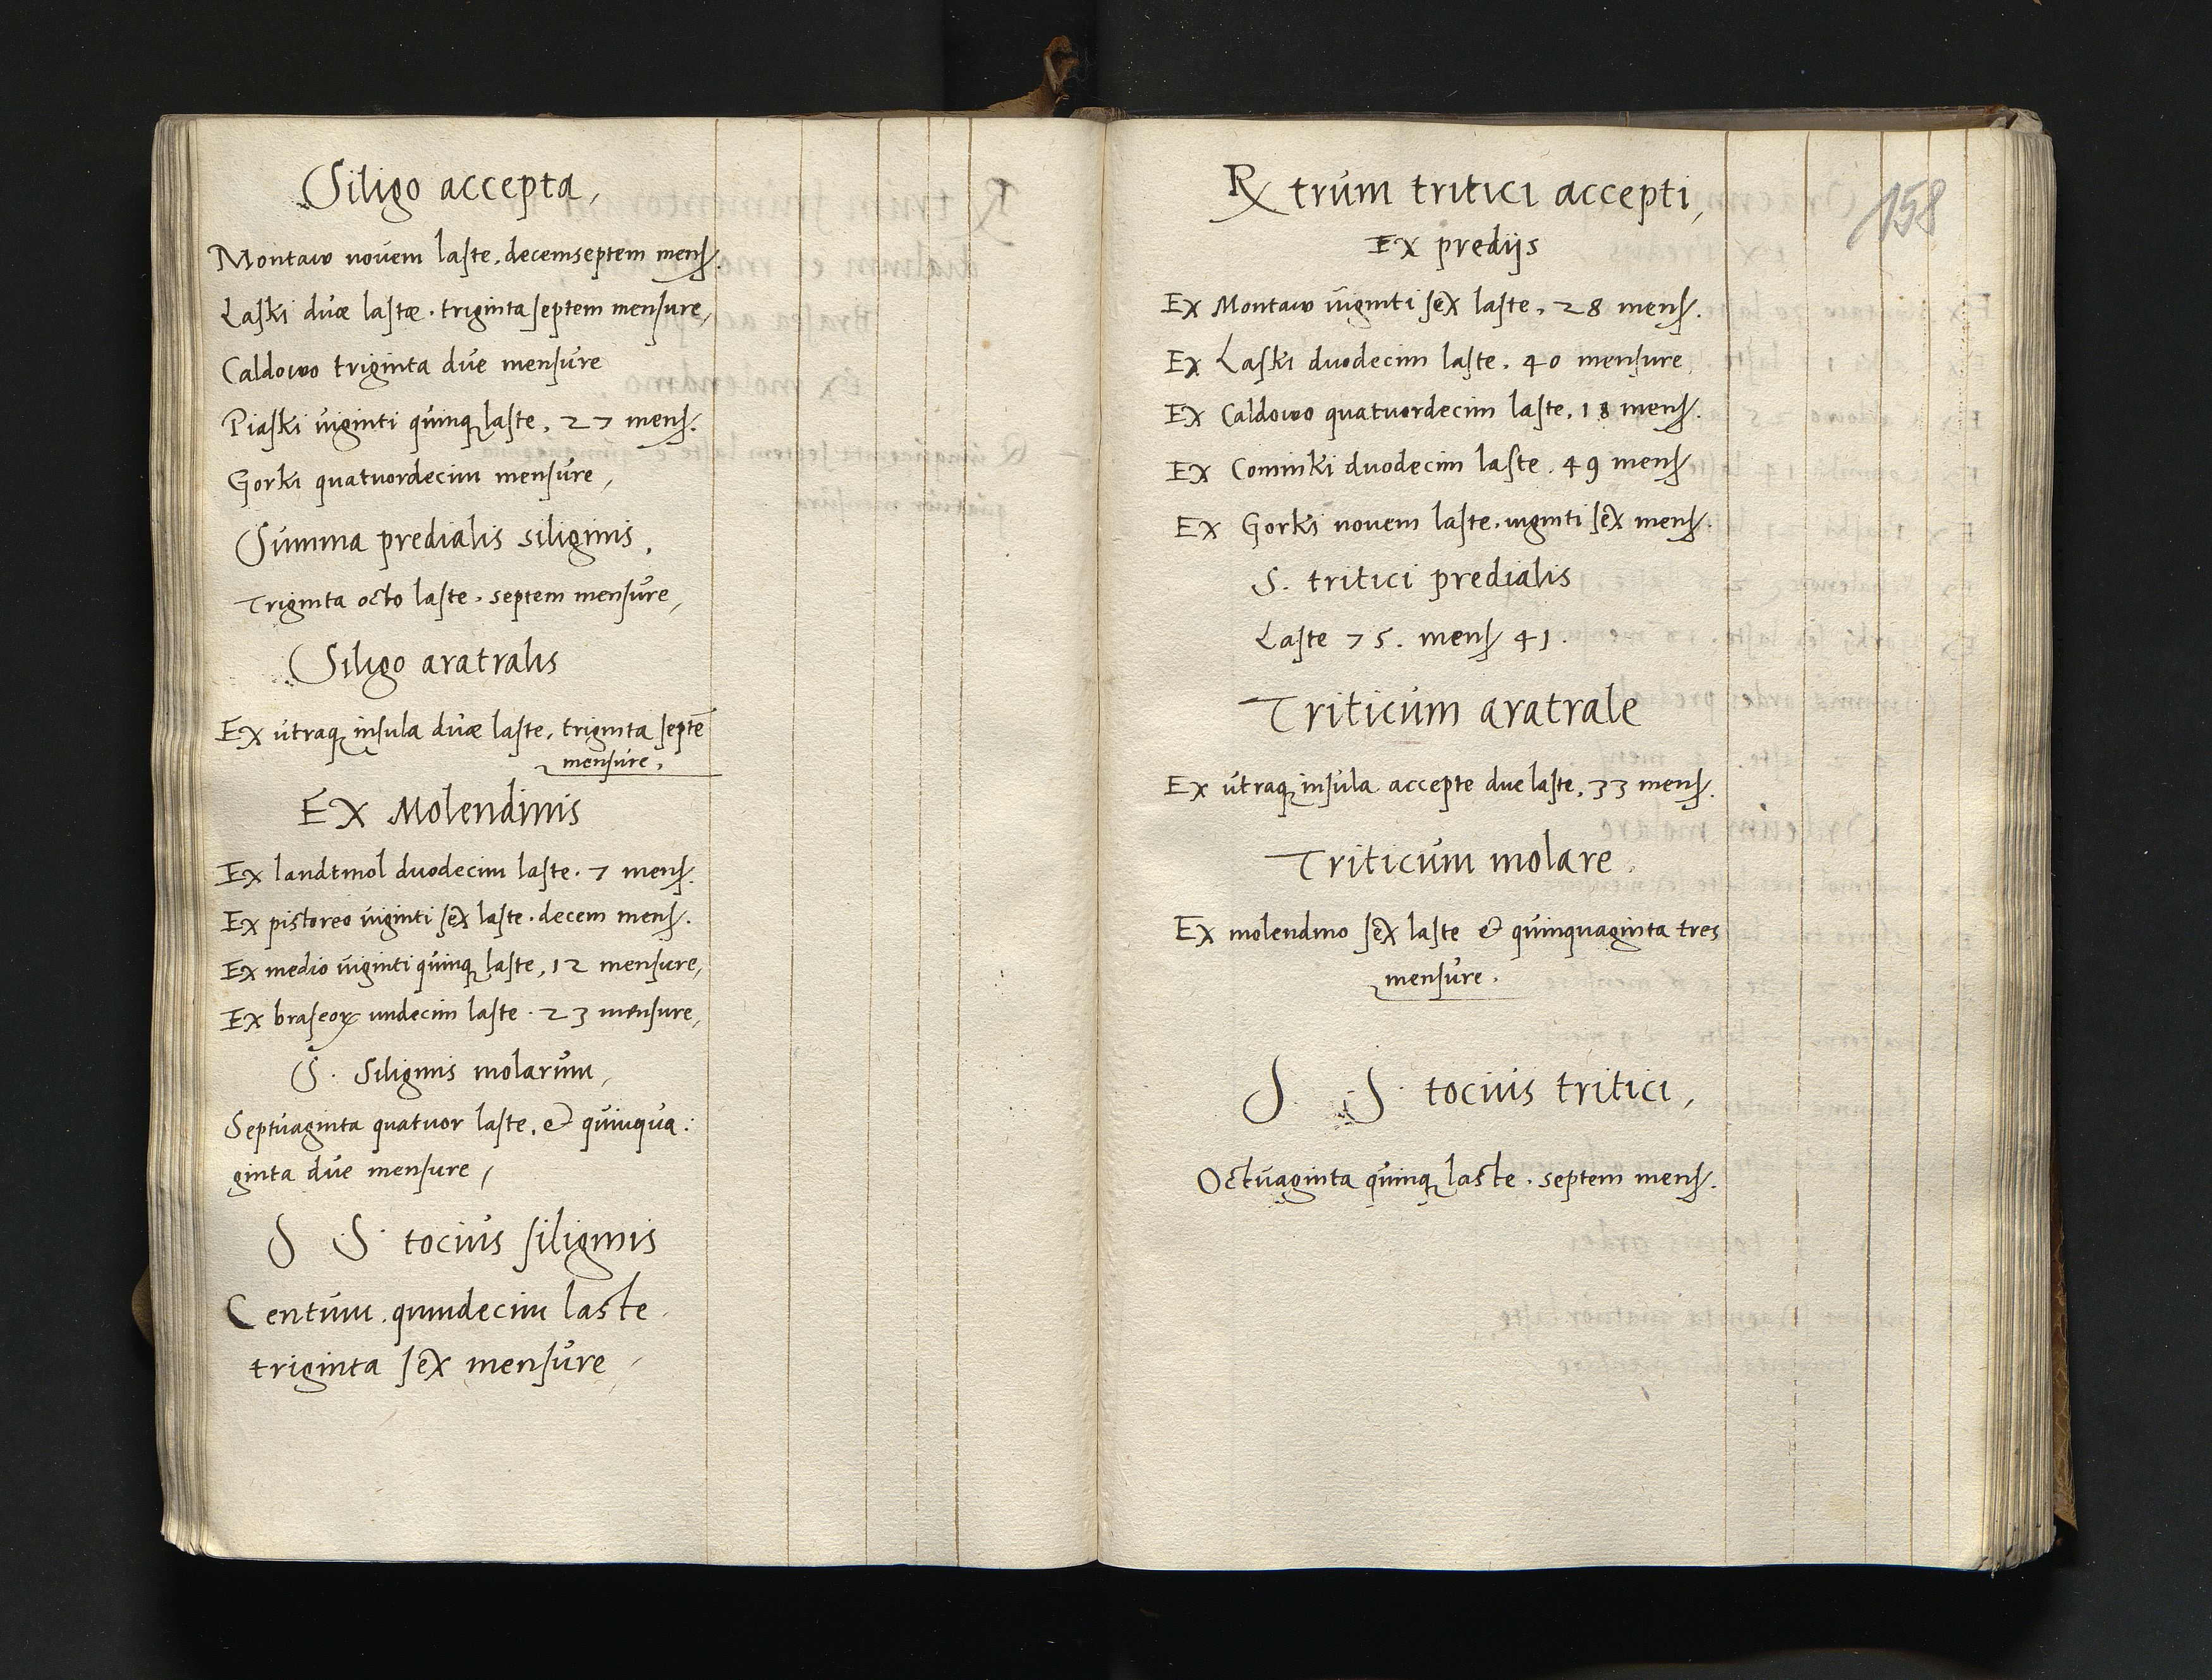 Siligo accepta,
Montaw novem laste. decemseptem mens.
Laski duæ lastæ. triginta septem mensure,
Caldowo triginta due mensure
Piaski viginti quinq laste, 27 mens.
Gorki quatuordecim mensure,
Summa predialis siliginis,
Triginta octo laste. septem mensure,
Siligo aratralis
Ex utraq insula duæ laste, triginta septē
mensure,
Ex Molendinis
Ex landtmol duodecim laste. 7 mens.
Ex pistoreo viginti sex laste. decem mens.
Ex medio viginti quinq laste, 12 mensure,
Ex braseoꝝ undecim laste. 23 mensure,
S. Siliginis molarum,
Septuaginta quatuor laste, & quinqua:
ginta due mensure,
S S. tocius siliginis
Centum. quindecim laste.
triginta sex mensure,
Rtrum tritici accepti,
158
Ex predijs
Ex Montaw viginti sex laste, 28 mens.
Ex Laski duodecim laste. 40 mensure,
Ex Caldowo quatuordecim laste, 18 mens.
Ex Cominki duodecim laste. 49 mens.
Ex Gorki novem laste. viginti sex mens.
S. tritici predialis
Laste 75. mens 41.
Triticum aratrale
Ex utraq insula accepte due laste, 33 mens.
Triticum molare.
Ex molendino sex laste & quinquaginta tres
mensure.
S. S. tocius tritici,
Octuaginta quinq laste. septem mens.